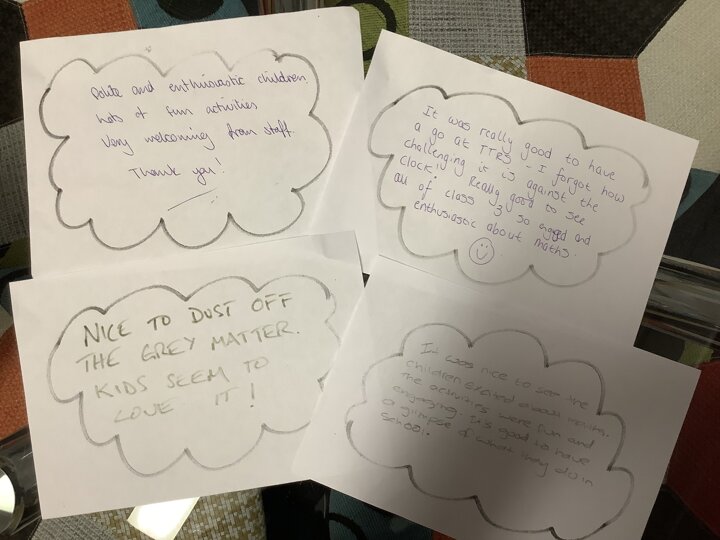 Polite and enthusiastic children
Lots of fun activities
Very welcoming from staff.
Thank you!
It was really good to have
a go at TTRS - I forgot how
challenging it is against the
clock! Really good to see
all of class 3 so engaged and
enthusiastic about maths.
NICE TO DUST OFF
THE GREY MATTER.
KIDS SEEM TO
LOVE IT!
It was nice to see the
children excited about maths.
The activities were fun and
engaging. It's good to have
a glimpse of what they do in
school.